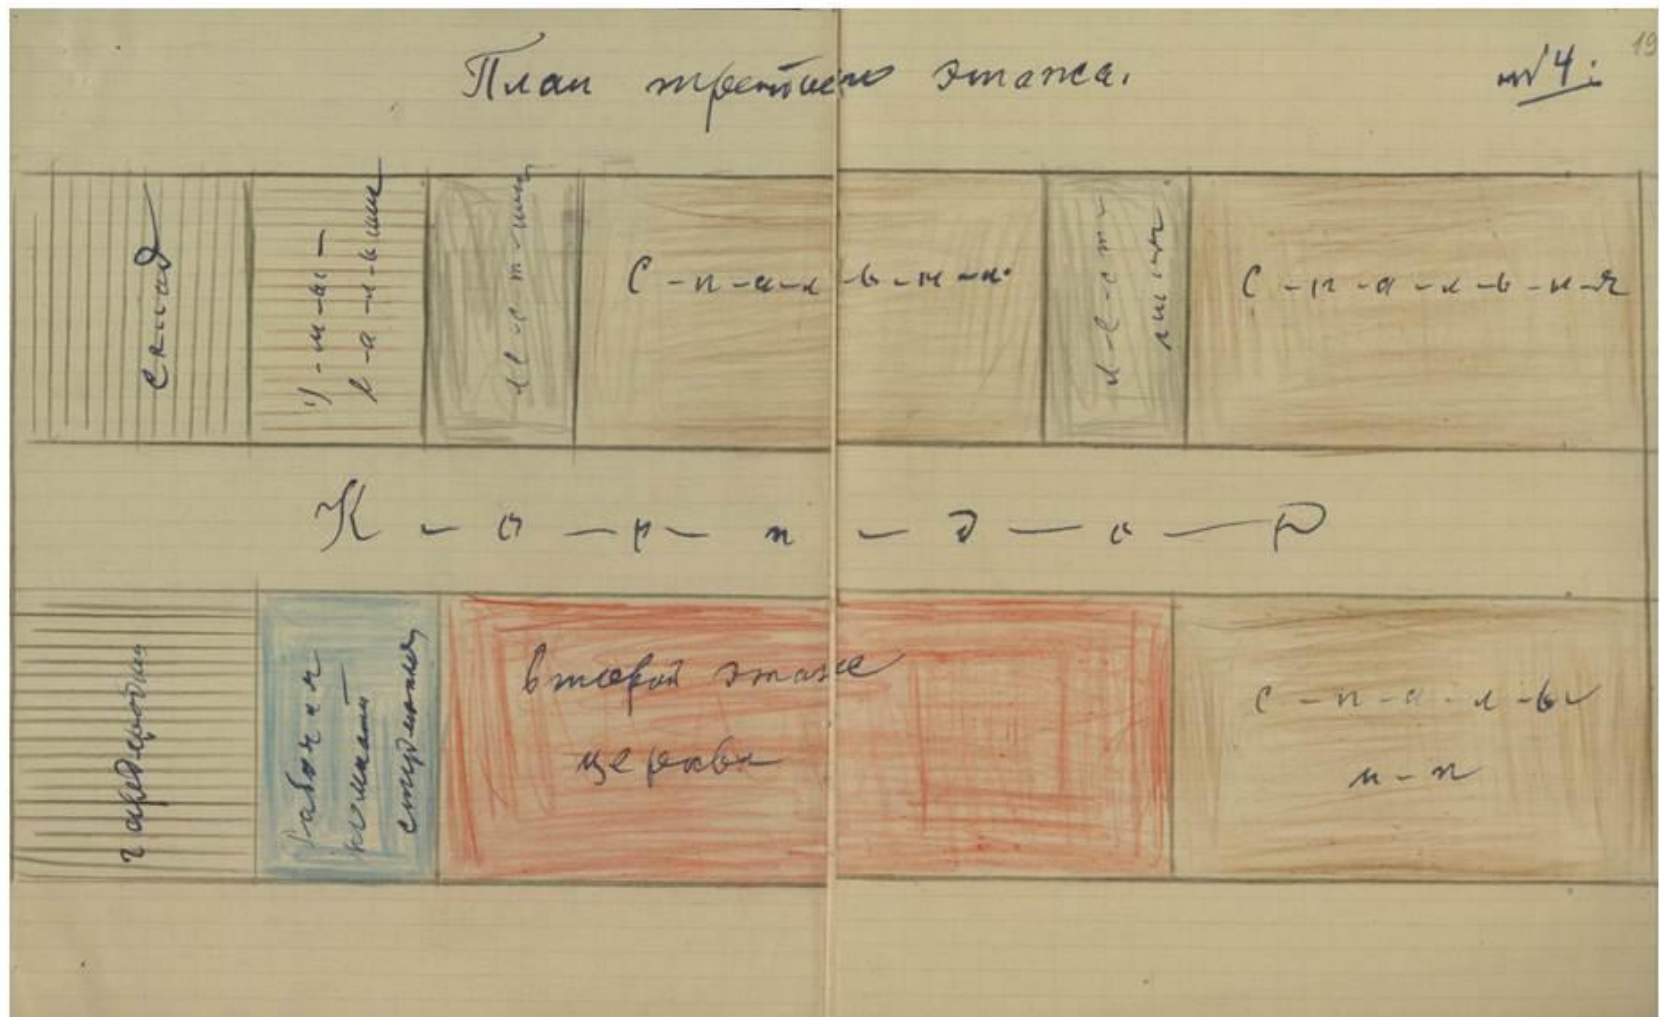 План третьего этажа.
№ 4.
19
Склад
У-мы-
в-а-л-ьник
С-п-а-л-ь-н-я
л-е-ст-
ница
С-п-а-л-ь-н-я
К-о-р-и-д-о-р
гардеробная
Рабочая
комната
студентов
второй этаж
церкви
С-п-а-л-ь
н-я